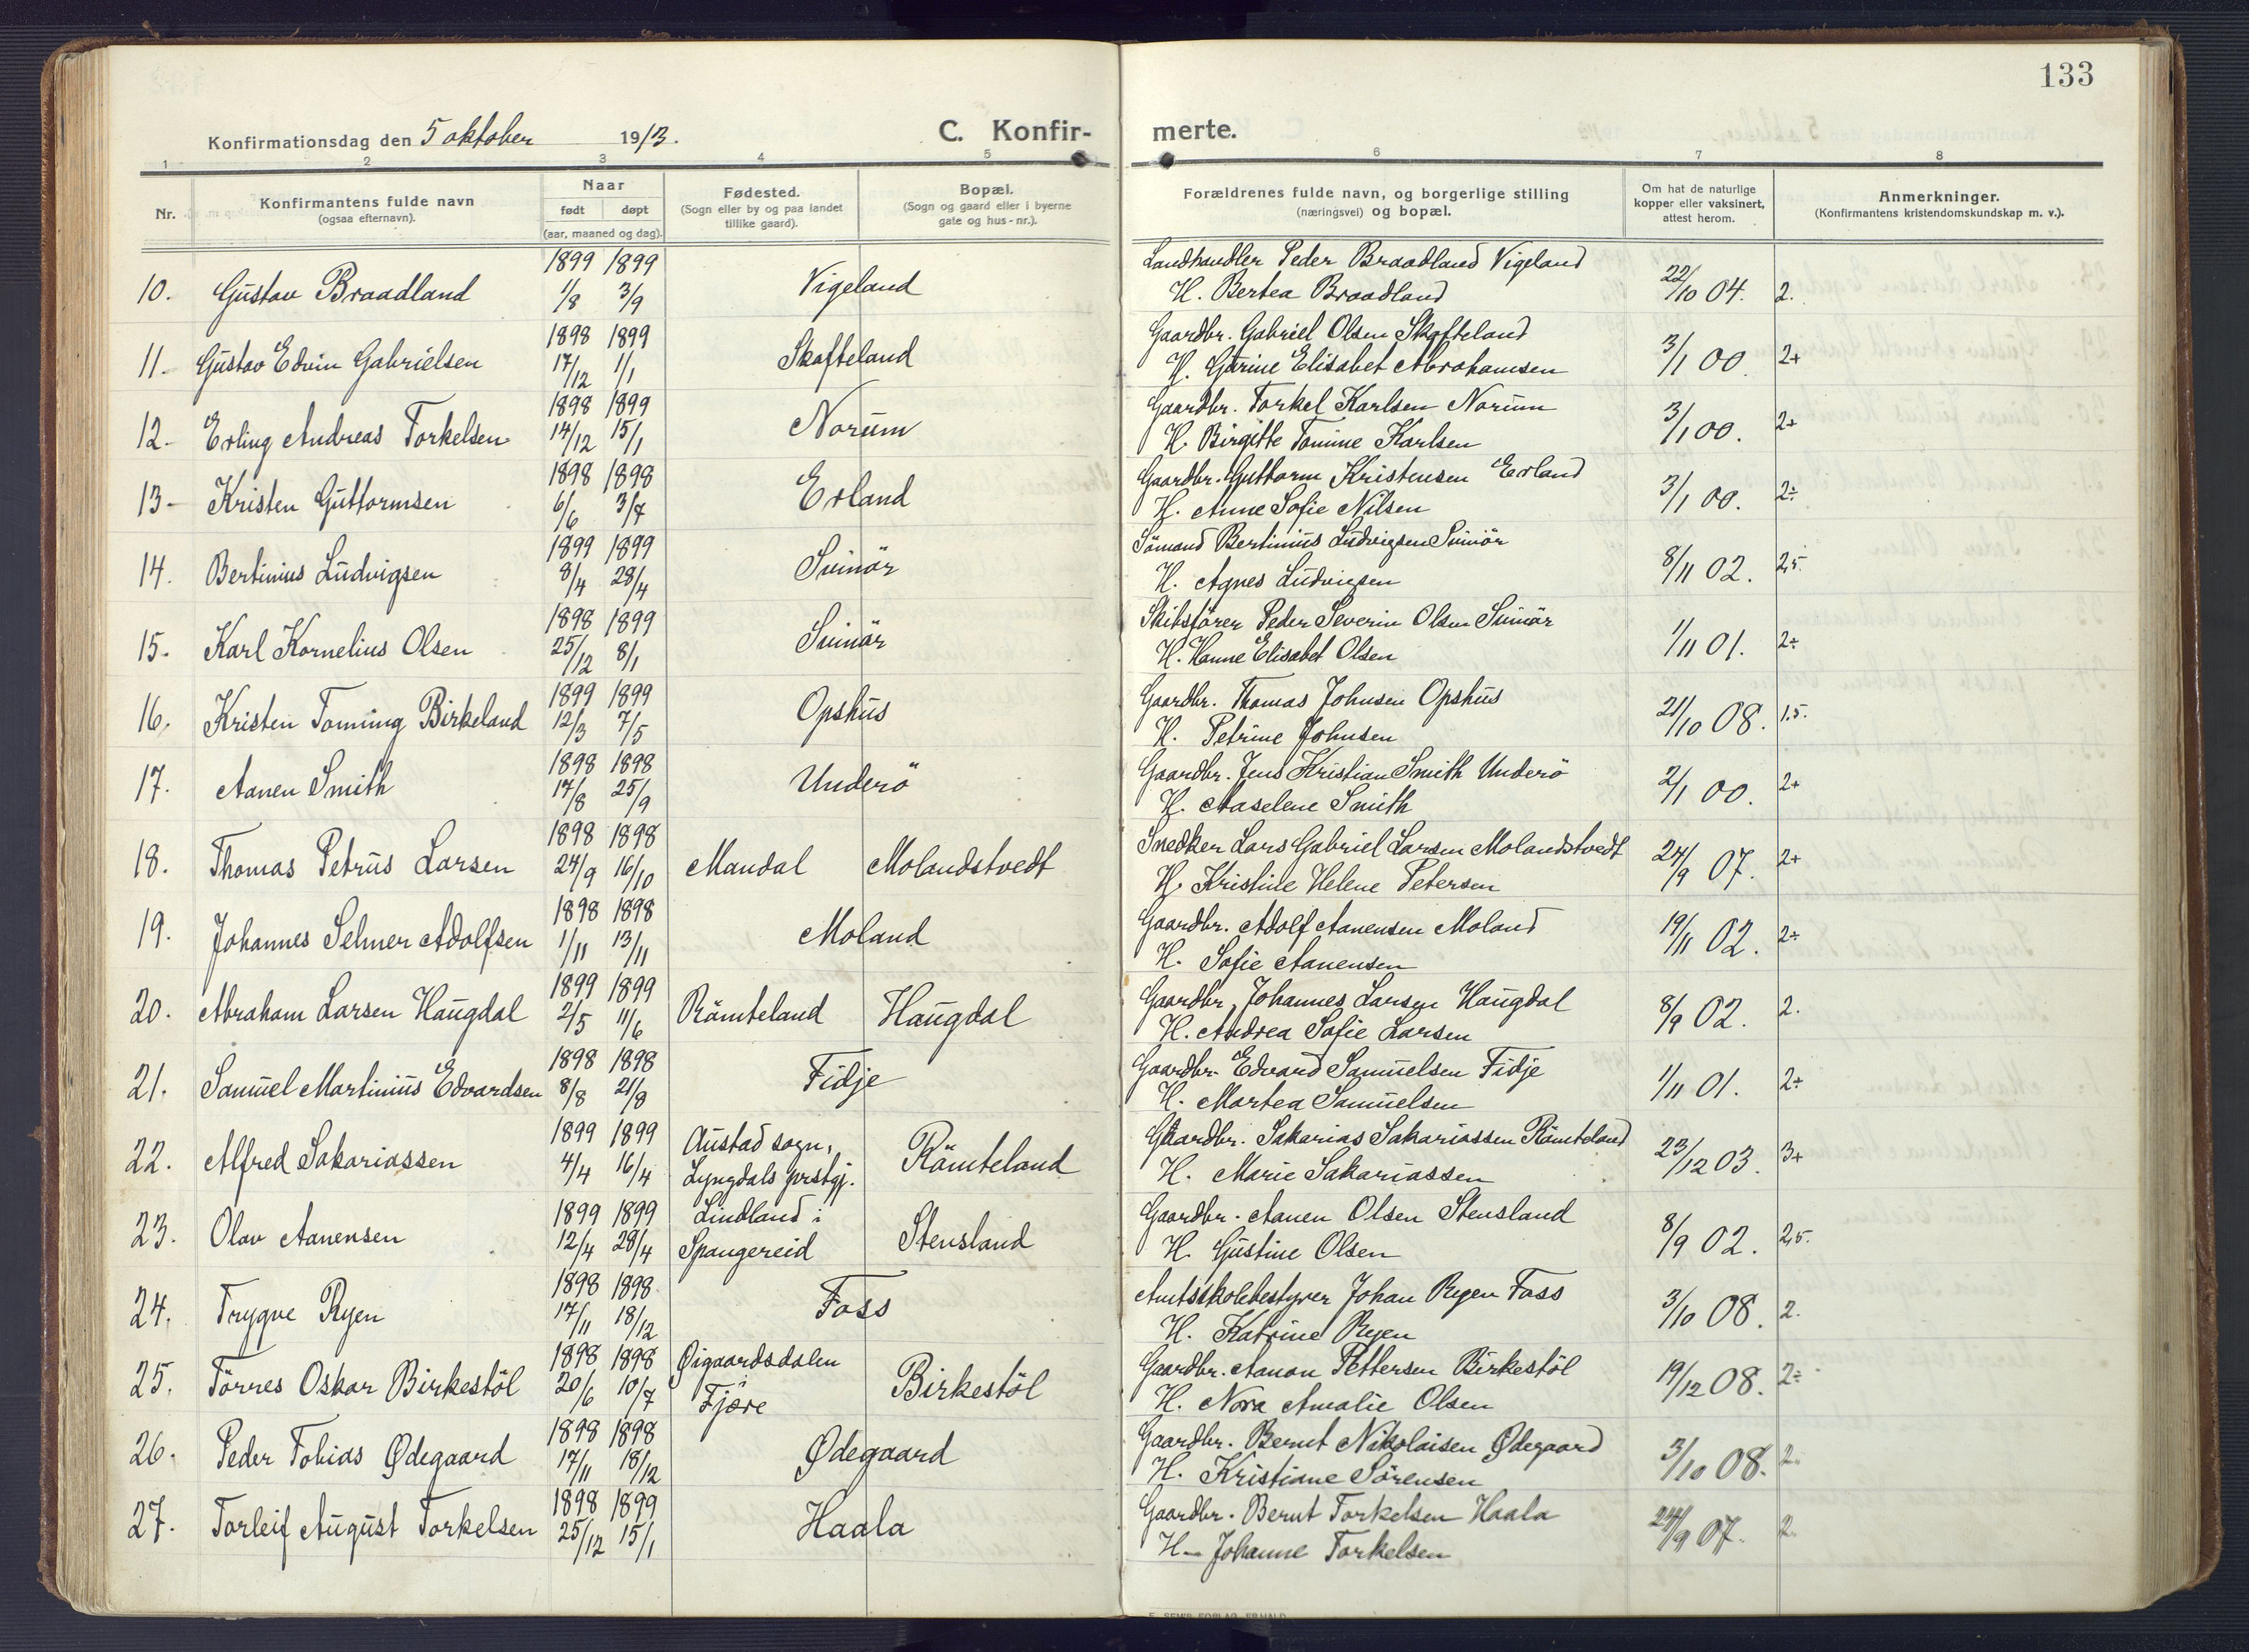 133
Konfirmationsdag den 5 oktober 1913.
C. Konfirmerte.
1 2 3 4 5 6 7 8
Nr.
Konfirmantens fulde navn
(ogsaa efternavn).
Naar
født døpt
(aar, maaned og dag).
Fødested.
(Sogn eller by og paa landet
tillike gaard).
Bopæl.
(Sogn og gaard eller i byerne
gate og hus-nr.).
Forældrenes fulde navn, og borgerlige stilling
(næringsvei) og bopæl.
Om hat de naturlige
kopper eller vaksinert,
attest herom.
Anmerkninger.
(Konfirmantens kristendomskundskap m. v.).
1899 1899 Landhandler Peder Braadland Vigeland
10. Gustav Braadland 1/8 3/9 Vigeland H. Bertea Braadland 22/10 04. 2.
1898 1899 Gaardbr. Gabriel Olsen Skofteland
11. Gustav Edvin Gabrielsen 17/12 1/1 Skofteland H. Gurine Elisabet Abrahamsen 3/1 00 2+
1898 1899 Gaardbr. Torkel Karlsen Norum
12. Erling Andreas Torkelsen 14/12 15/1 Norum H. Birgitte Tomine Karlsen 3/1 00. 2+
1898 1898 Gaardbr. Guttorm Kristensen Erland
13. Kristen Guttormsen 6/6 3/7 Erland H. Anne Sofie Nilsen 3/1 00. 2÷
1899 1899 Sömand Bertinius Ludvigsen Svinör
14. Bertinius Ludvigsen 8/4 28/4 Svinör H. Agnes Ludvigsen 8/11 02. 2,5.
1898 1899 Skibsförer Peder Severin Olsen Svinör
15. Karl Kornelius Olsen 25/12 8/1 Svinör H. Hanne Elisabet Olsen 1/11 01. 2÷
1899 1899 Gaardbr. Thomas Johnsen Opshus
16. Kristen Tonning Birkeland 12/3 7/5 Opshus H. Petrine Johnsen 21/10 08. 1.5.
1898 1898 Gaardbr. Jens Kristian Smith Underö
17. Aanen Smith 17/8 25/9 Underö H. Aaselene Smith 2/1 00. 2+
1898 1898 Snedker Lars Gabriel Larsen Molandstvedt
18. Thomas Petrus Larsen 24/9 16/10 Mandal Molandstvedt H. Kristine Helene Petersen 24/9 07. 2+
1898 1898 Gaardbr. Adolf Aanensen Moland
19. Johannes Selmer Adolfsen 1/11 13/11 Moland H. Sofie Aanensen 19/11 02. 2÷
1899 1899 Gaardbr. Johannes Larsen Haugdal
20. Abraham Larsen Haugdal 2/5 11/6 Rämteland Haugdal H. Andrea Sofie Larsen 8/9 02. 2.
1898 1898 Gaardbr. Edvard Samuelsen Fidje
21. Samuel Martinius Edvardsen 8/8 21/8 Fidje H. Martea Samuelsen 1/11 01. 2+
1899 1899 Austad sogn, Gaardbr. Sakarias Sakariassen Rämteland
22. Alfred Sakariassen 4/4 16/4 Lyngdals prstgj. Rämteland H. Marie Sakariassen 23/12 03. 3+
1899 1899 Lindland i Gaardbr. Aanen Olsen Stensland
23. Olav Aanensen 12/4 28/4 Spangereid Stensland H. Gustine Olsen 8/9 02. 2,5.
1898 1898 Amtsskolebestyrer Johan Ryen Foss
24. Trygve Ryen 17/11 18/12 Foss H. Katrine Ryen 3/10 08. 2.
1898 1898 Øigaardsdalen Gaardbr. Aanon Pettersen Birkestöl
25. Törres Oskar Birkestöl 20/6 10/7 i Fjære Birkestöl H. Nora Amalie Olsen 19/12 08. 2÷
1898 1898 Gaardbr. Bernt Nikolaisen Ødegaard
26. Peder Tobias Ødegaard 17/11 18/12 Ødegaard H. Kristiane Sörensen 3/10 08. 2.
1898 1899 Gaardbr. Bernt Torkelsen Haala
27. Torleif August Torkelsen 25/12 15/1 Haala H. Johanne Torkelsen 24/9 07. 2.